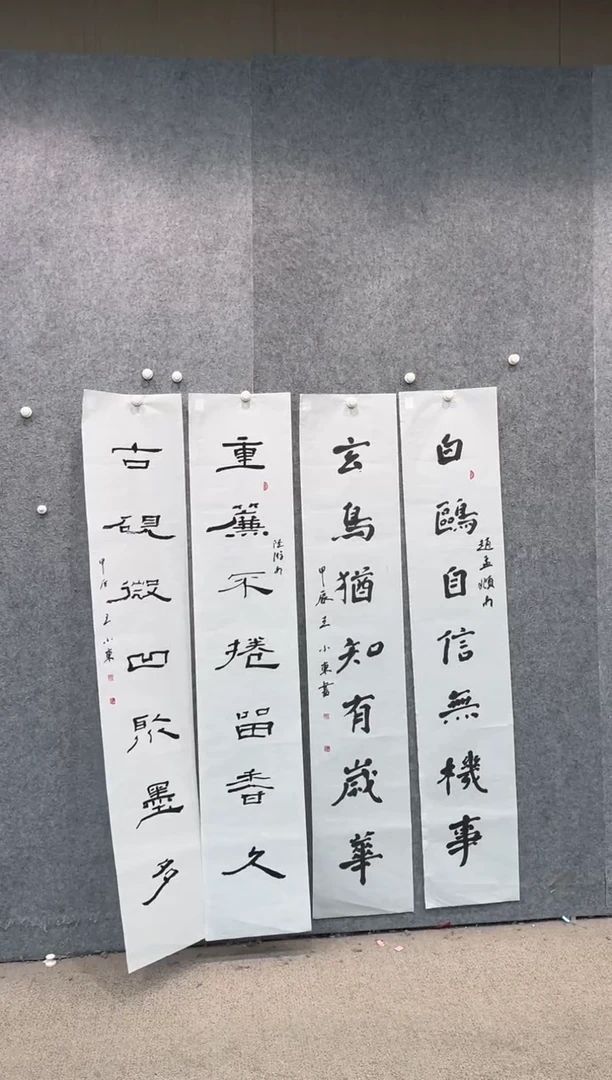 白鷗自信無機事
趙孟頫句
玄鳥猶知有歲華
甲辰 王小東書
重簾不捲留香久
陸游句
古硯微凹聚墨多
甲辰 王小東